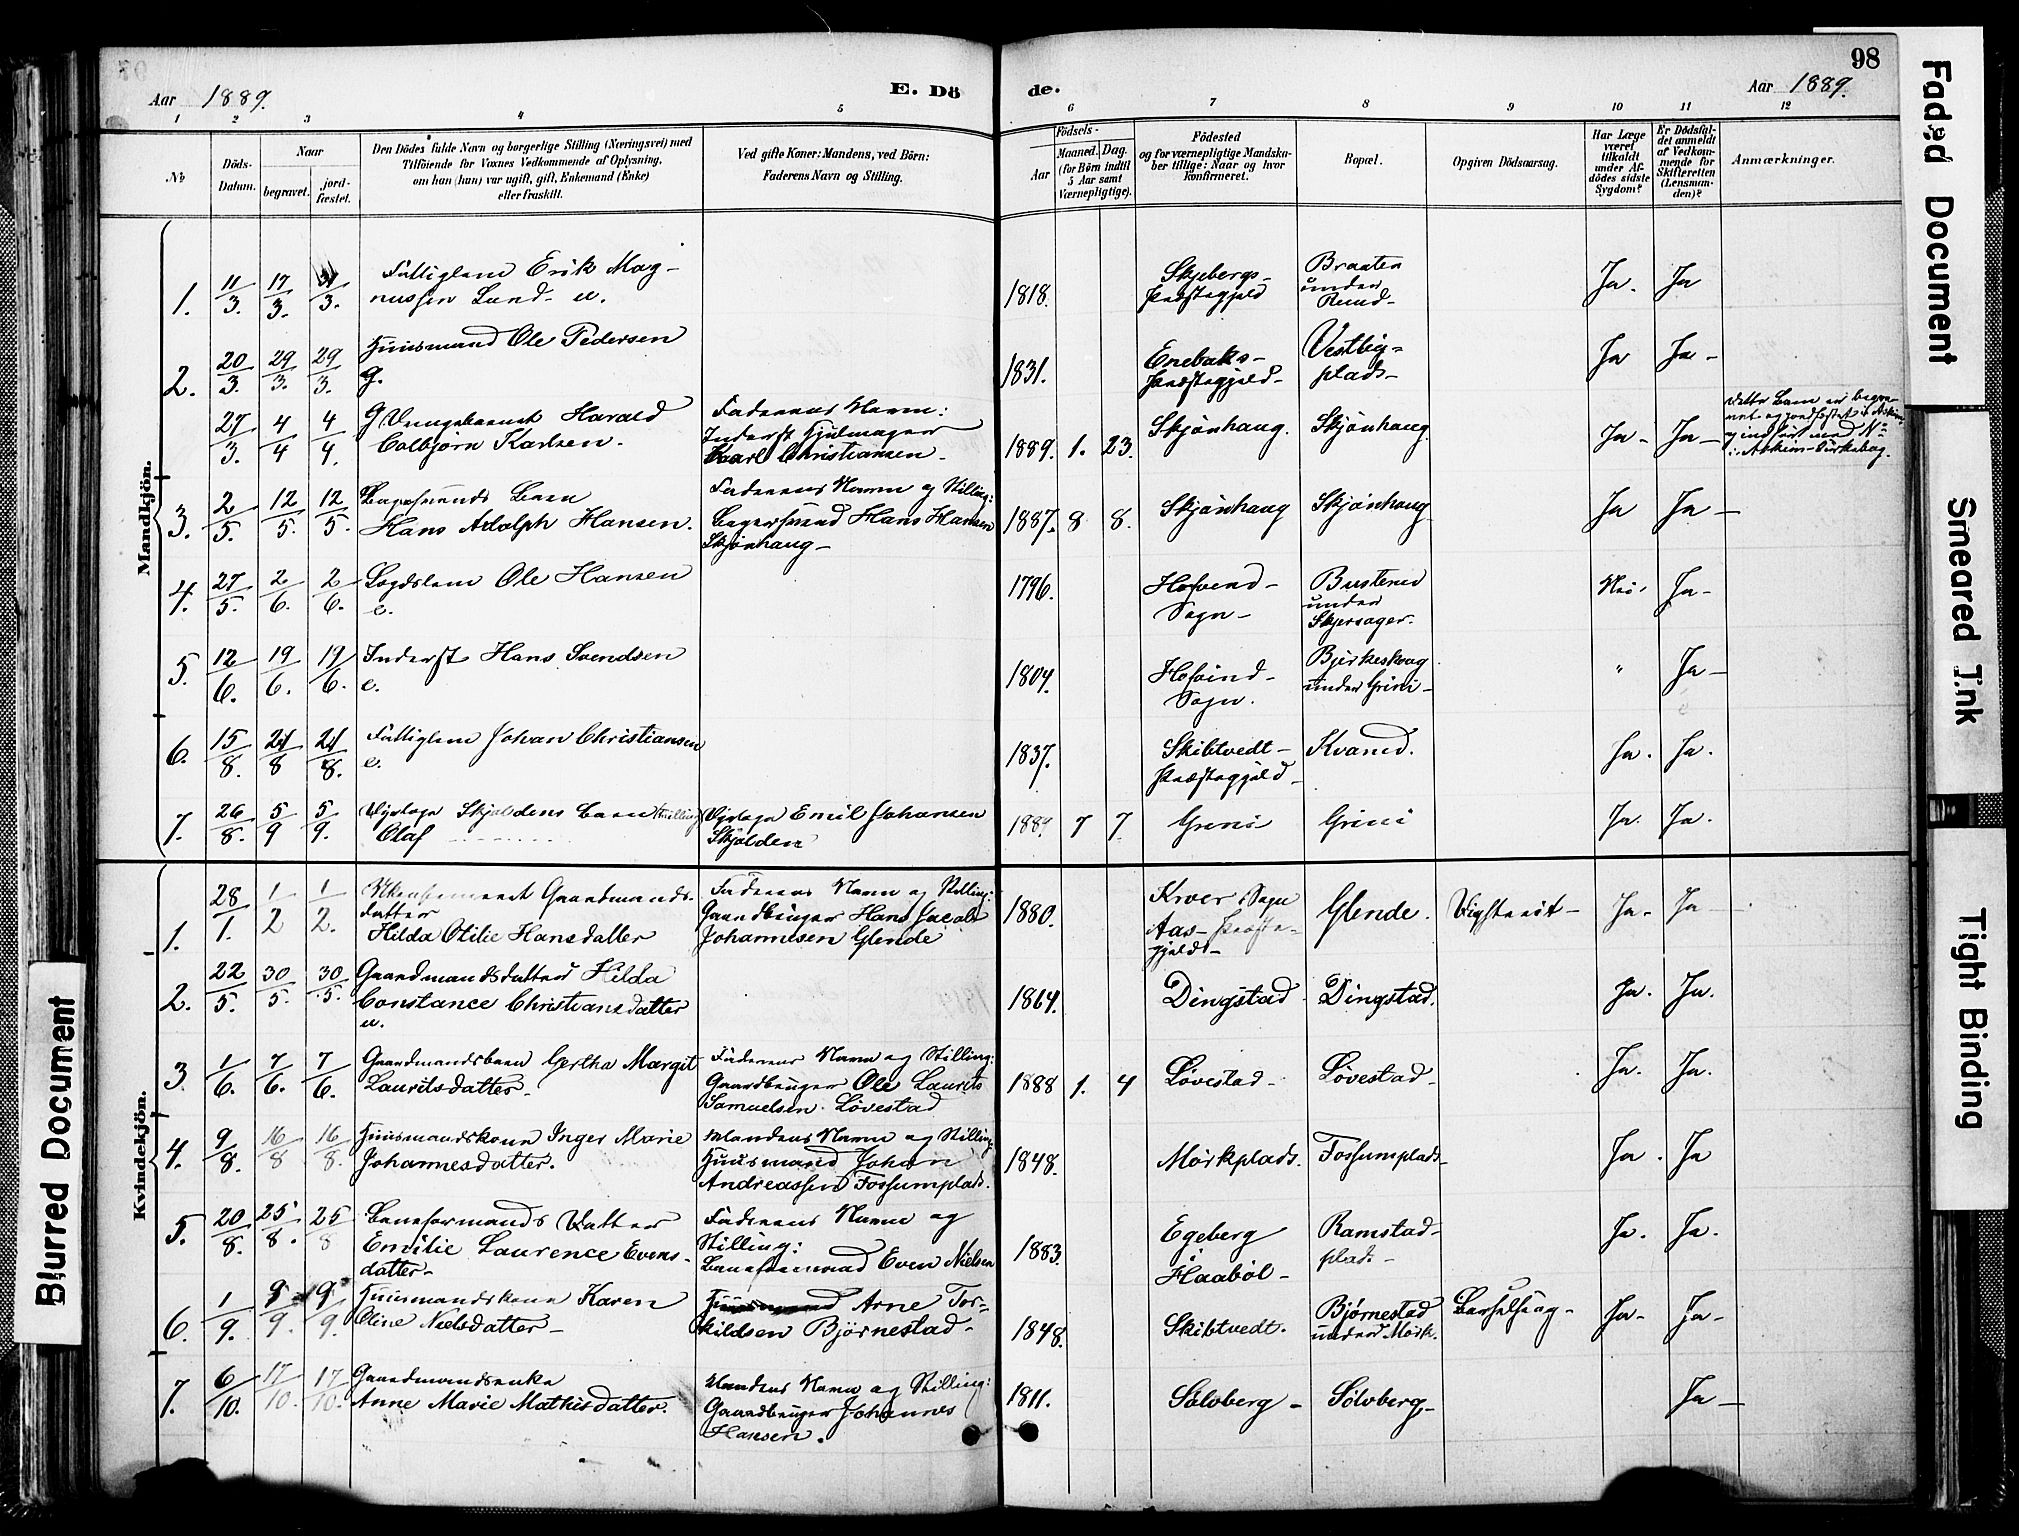 98
Aar 1889.
E. Dö
de.
Aar 1889.
1
2
3
4
5
6
7
8
9
10
11
12
No
Döds-
Datum.
Naar
begravet.
jord-
fæstet.
Den Dödes fulde Navn og borgerlige Stilling (Næringsvei) med
Tilföiende for Voxnes Vedkommende af Oplysning,
om han (hun) var ugift, gift, Enkemand (Enke)
eller fraskilt.
Ved gifte Koner: Mandens, ved Börn:
Faderens Navn og Stilling.
Födsels-
Aar
Maaned. Dag.
(for Börn indtil
5 Aar samt
Værnepligtige).
Födested
og for værnepligtige Mandska-
ber tillige: Naar og hvor
konfirmeret.
Bopæl.
Opgiven Dödsaarsag.
Har Læge
været
tilkaldt
under Af-
dödes sidste
Sygdom?
Er Dödsfal-
det anmeldt
af Vedkom-
mende for
Skifteretten
(Lensman-
den)?
Anmærkninger.
Mandkjön.
1. 11/3. 17/3. 3. Fattiglem Erik Mag-
nussen Lund- u.
1818. Skjebergs-
Præstegjeld
Braaten
under
Rund-
Ja. Ja
2. 20/3. 29/3. 29/3. Huusmand Ole Pedersen
g.
1831. Enebaks-
Præstegjeld-
Vestby-
plads-
Ja Ja-
27/3. 4/4 4/4. Harald
Colbjörn Karlsen.
Faderens Navn:
Inderst Hjulmager
Karl Christiansen.
1889. 1. 23. Skjönhaug. Skjönhaug. Ja- Ja-
Dette Barn er begra-
vet og jordfæstet i Askim
og indfört med No
i Askim-Kirkebog.
3. 2/5. 12/5. 12/5. Barn
Hans Adolph Hansen.
Faderens Navn og Stilling:
Hans Hansen
Skjönhaug-
1887. 8 8. Skjönhaug Skjönhaug Ja Ja-
4. 27/5. 2/6. 2/6. Lægdslem Ole Hansen
e.
1796. Hofvind-
Sogn-
Busterud
under
Skjersager.
Nei. Ja-
5. 12/6. 19/6. 19/6. Inderst Hans Svendsen
e.
1804. Hofvind-
Sogn.
Bjirkeskaug
under Grini-
" Ja-
6. 15/8. 24/8 24/8. Fattiglem Johan Christiansen
e.
1837. Skibtvedt-
Præstegjeld-
Kvarud.
Ja. Ja.
7. 26/8. 5/9 5/9. Skjoldens Barn
Olaf
Emil Johansen
Skjolden
1889 7 7. Grini Grini Ja. Ja.
Kvindekjön.
1. 28/1. 1/2 1/2. Gaardmands-
datter
Hilda Otilie Hansdatter
Faderens Navn og Stilling:
Gaardbruger Hans Jacob
Johannesen Glende
1880. Kroer Sogn
Aas- Præste-
gjeld-
Glende. Ja- Ja-
2. 22/5. 30/5. 30/5. Gaardmandsdatter Hilda
Constance Christiansdatter
u.
1864. Dingstad Dingstad. Ja. Ja.
3. 1/6. 7/6. 7/6. Gaardmandsbarn Gertha Margit
Lauritsdatter-
Faderens Navn og Stilling:
Gaardbruger Ole Laurits
Samuelsen Lövestad
1888 1. 4 Lövestad- Lövestad- Ja. Ja.
4. 9/8. 16/8 16/8. Huusmandskone Inger Marie
Johannesdatter.
Mandens Navn og Stilling:
Huusmand Johan
Andreassen Fossumplads.
1848. Mörkplads. Fossumplads- Ja. Ja
5. 20/8. 25/8. 25/8 Baneformands Datter
Emilie Laurence Evens-
datter-
Faderens Navn og
Stilling:
Baneformand Even Nielsen
1883. Egeberg
i
Haaböl-
Ramstad-
plads-
Ja. Ja.
6. 1/9. 9. 9/9. Huusmandskone Karen
Oline Nielsdatter-
Huusmand Arne Tor-
kildsen Björnestad-
1848. Skibtvedt.
Björnestad
under Mörk.
Barselseng- Ja- Ja-
7. 6/10. 17/10. 17/10. Gaardmandsenke
Anne Marie Mathisdatter.
Mandens Navn og Stilling:
Gaardbruger Johannes
Hansen.
1811. Sölvberg- Sölvberg- Ja-
Faded Document
Smeared Ink
Tight Binding
Blurred Document